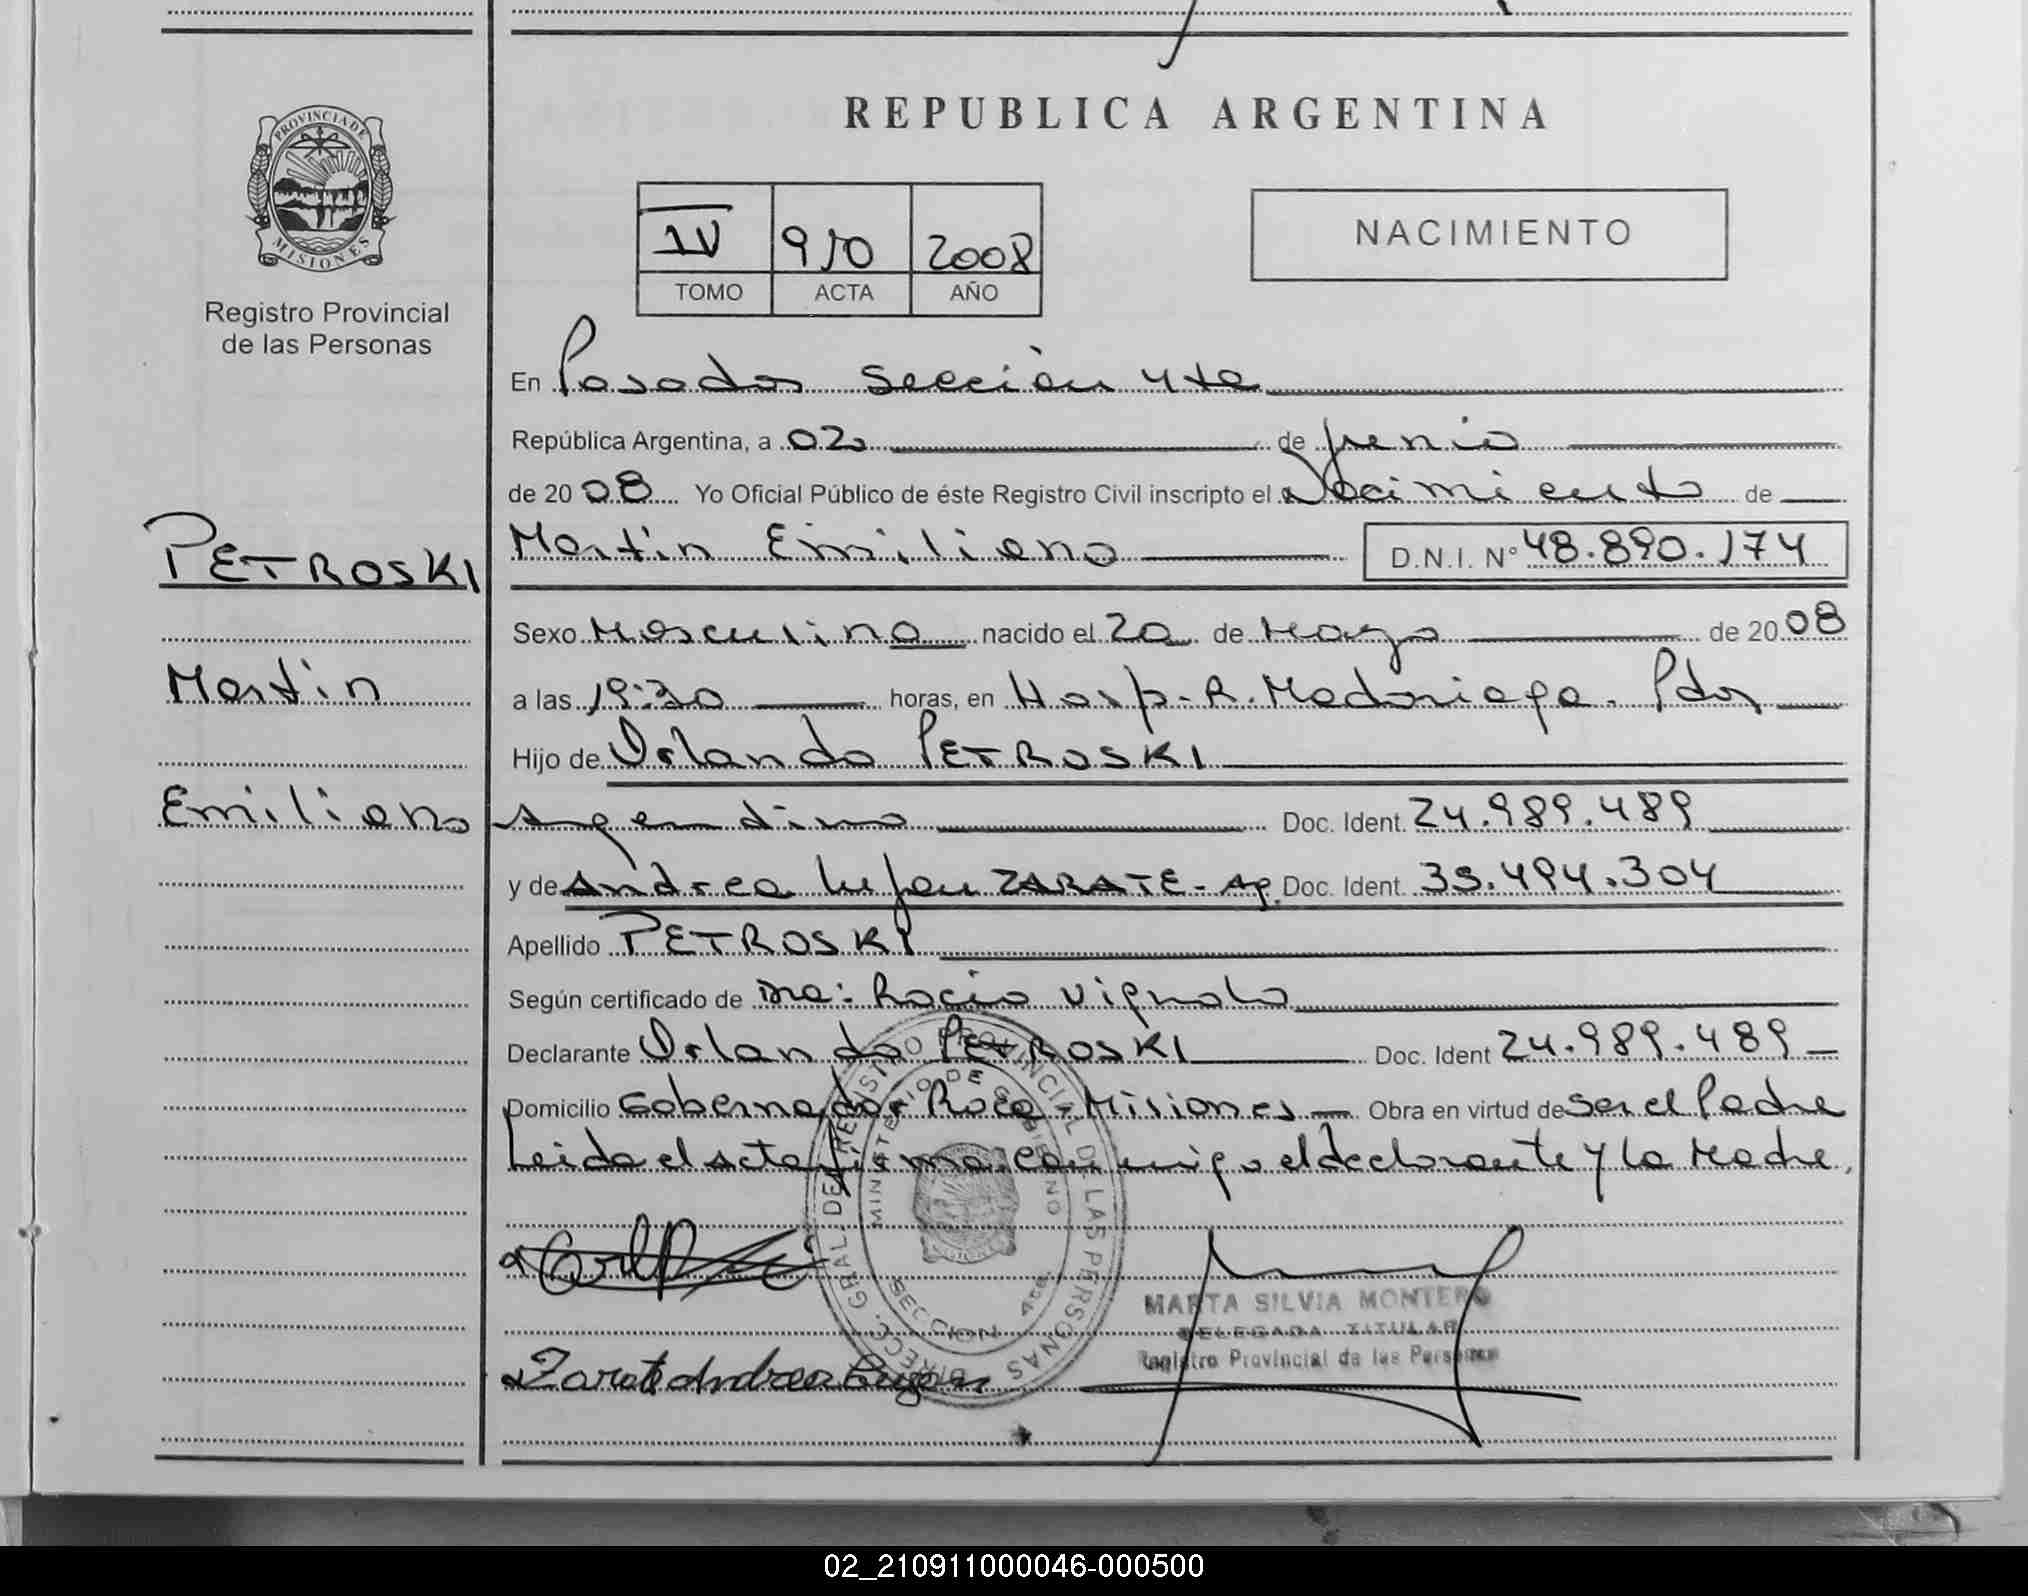 REPUBLICA ARGENTINA
PROVINCIA DE MISIONES
Registro Provincial
de las Personas
IV 910 2008
TOMO ACTA AÑO
NACIMIENTO
En Posadas Sección 4ta
República Argentina, a 02 de junio
de 2008 Yo Oficial Público de éste Registro Civil inscripto el Nacimiento de
PETROSKI
Martin Emiliano D.N.I. N° 48.890.174
Sexo Masculino nacido el 20 de Mayo de 2008
Martin
a las 19:30 horas, en Hosp. R. Madariaga. Pdas
Hijo de Orlando PETROSKI
Emiliano
Argentino Doc. Ident. 24.989.489
y de Andrea Lujan ZARATE - Ag. Doc. Ident. 35.494.304
Apellido PETROSKI
Según certificado de Dra: Rocio Vignolo
Declarante Orlando PETROSKI Doc. Ident 24.989.489
Domicilio Gobernador Roca - Misiones Obra en virtud de ser el Padre
Leida el acta firma conmigo el declarante y la Madre.
DIRECC. GRAL. DEL REGISTRO PROVINCIAL DE LAS PERSONAS
MINISTERIO DE GOBIERNO
SECCION 4ta.
MISIONES
MARTA SILVIA MONTERO
DELEGADA TITULAR
Registro Provincial de las Personas
Zarate Andrea Lujan
02_210911000046-000500